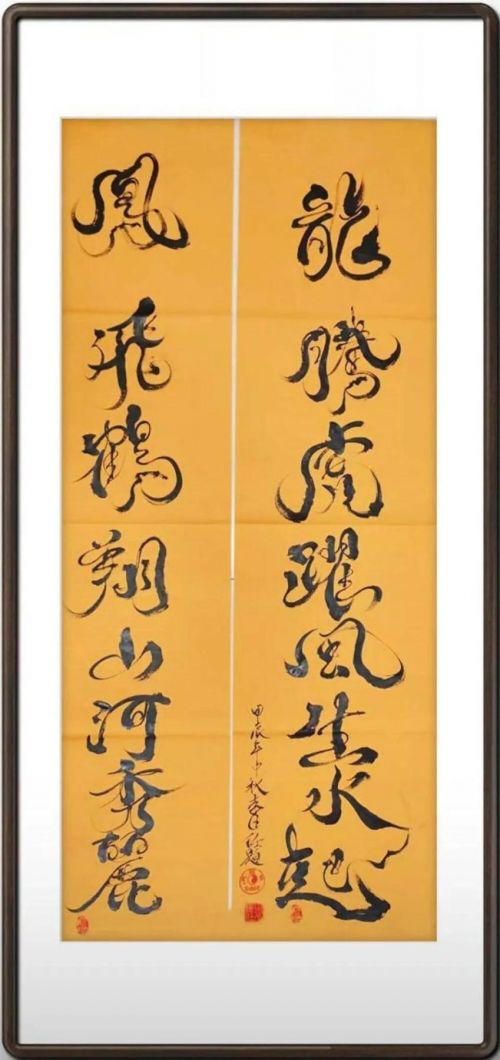 龍騰虎躍風生水起
甲辰年中秋題
鳳飛鶴翔山河秀麗